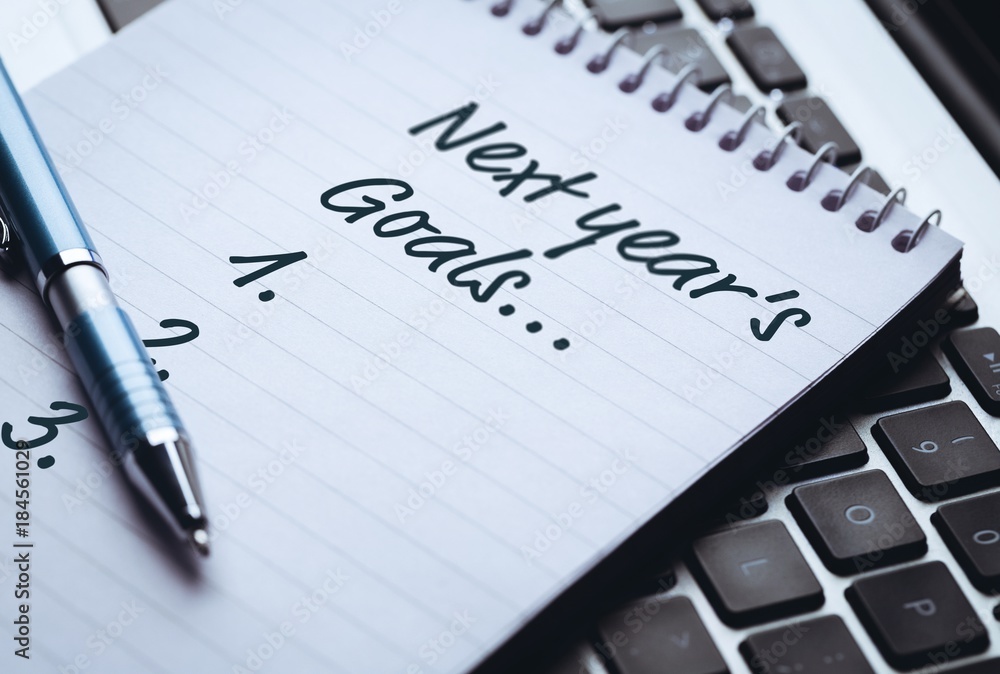 Next year's
Goals...
1.
2.
3.
9
O
L
P
V
Adobe Stock | #184561029